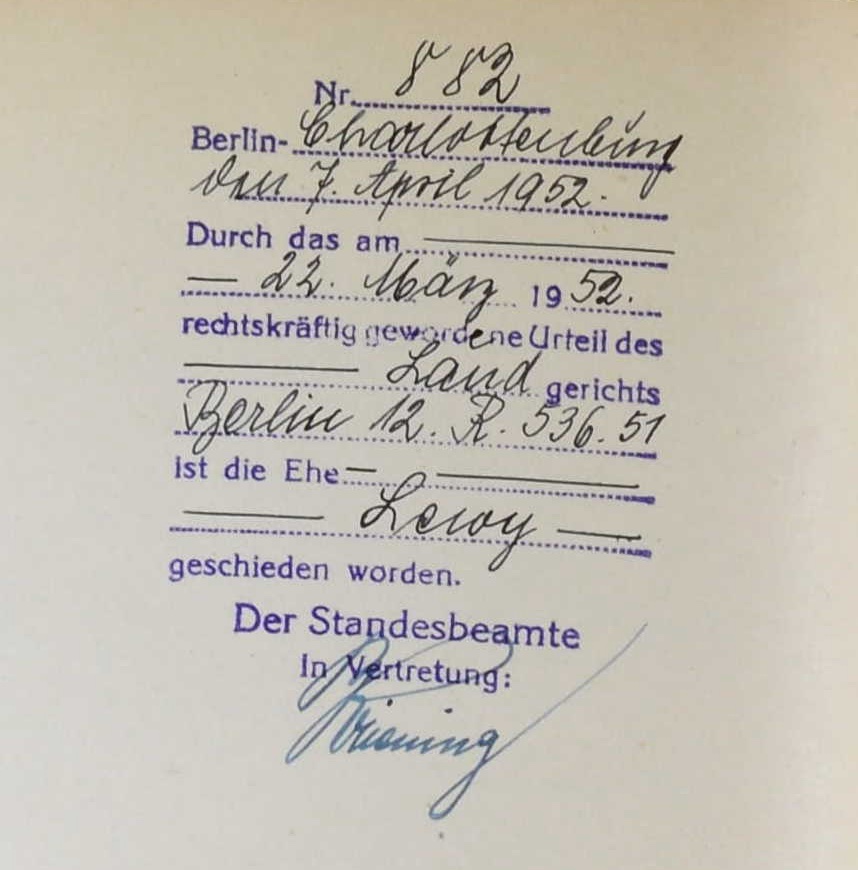 Nr. 882
Berlin-Charlottenburg
den 7. April 1952.
Durch das am
22. März 1952.
rechtskräftig gewordene Urteil des
Landgerichts
Berlin 12. R. 536.51
ist die Ehe
Lewy
geschieden worden.
Der Standesbeamte
In Vertretung: